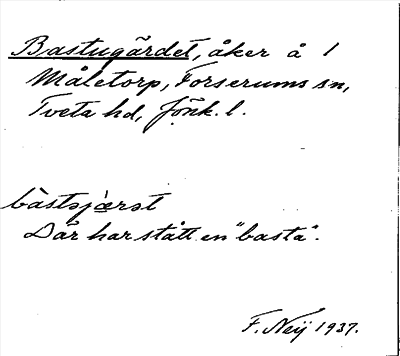 Bastugärdet, åker å 1
Måletorp, Forserums sn,
Tveta hd, Jönk. l.
bàstsjæ̀rət
Där har stått en "basta".
F. Neij 1937.